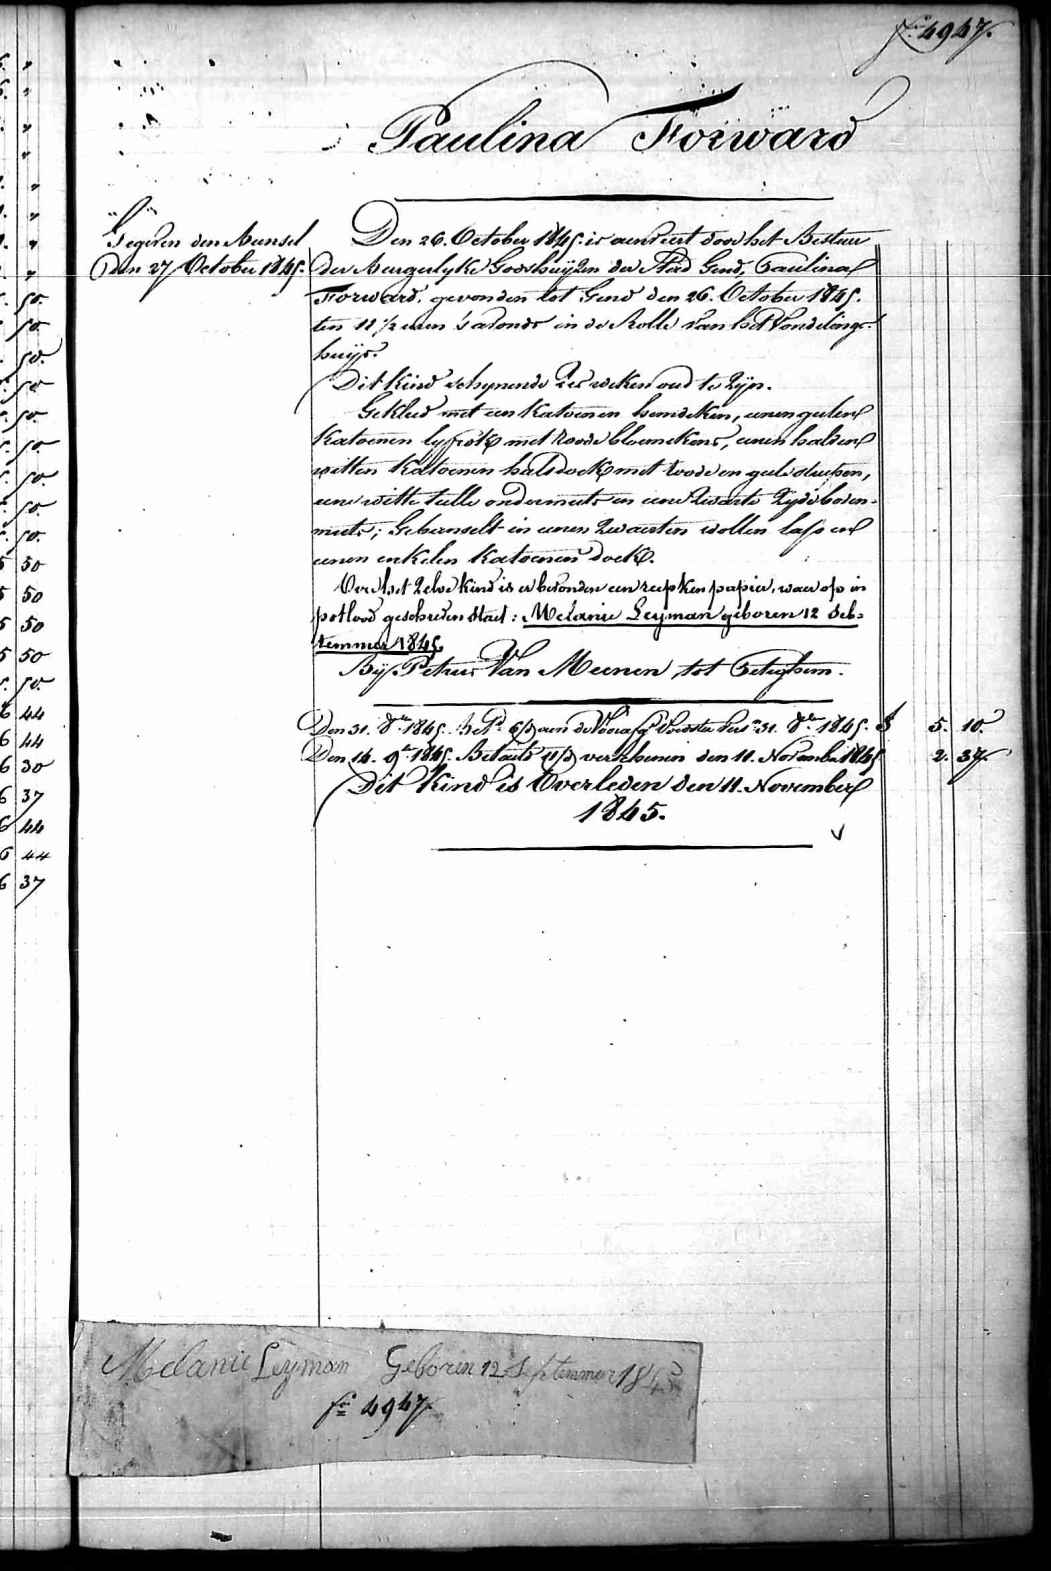 fo 4947.
Paulina Forward
Gegeven den Bunsel
Den 27 October 1845.
Den 26. October 1845. is aenveert door het Bestuur
der Burgerlyke Godshuyzen der Stad Gend, Paulina
Forward, gevonden tot Gend den 26. October 1845.
ten 11 1/2 uren 's avonds in de Rolle van het Vondelings-
huys.
Dit kind schynende zes weken oud te zyn.
Gekleed met een katoenen hemdeken, eenen geelen
katoenen lyfrok met roode bloemekens, eenen halven
witten katoenen halsdoek met roode en geele streepen,
eene witte tulle ondermuts en eene zwarte zyde boven-
muts; Gebunselt in eenen zwarten wollen lap en
eenen enkelen katoenen doek.
Over het zelve kind is er bevonden een reepken papier, waer op in
potlood geschreven staet: Melanie Leyman geboren 12 Sep-
temmer 1845.
By Petrus Van Meenen, tot Eeteghem.
Den 31. 8bre 1845. Bet. 6/3 aen de 31. 8bre 1845. 5. 10.
Den 14. 9bre 1845. Betaeld 11/3 verschenen den 11. November 1845 2. 37.
Dit kind is Overleden den 11. November
1845.
50.
50.
50.
50
50.
50
50
50
50.
5 50
5 50
5 50
5 50
50.
6 44
6 44
6 30
6 37
6 44
6 44
6 37
Melanie Leyman Geboren 12 Septemmer 1845
fo 4947.